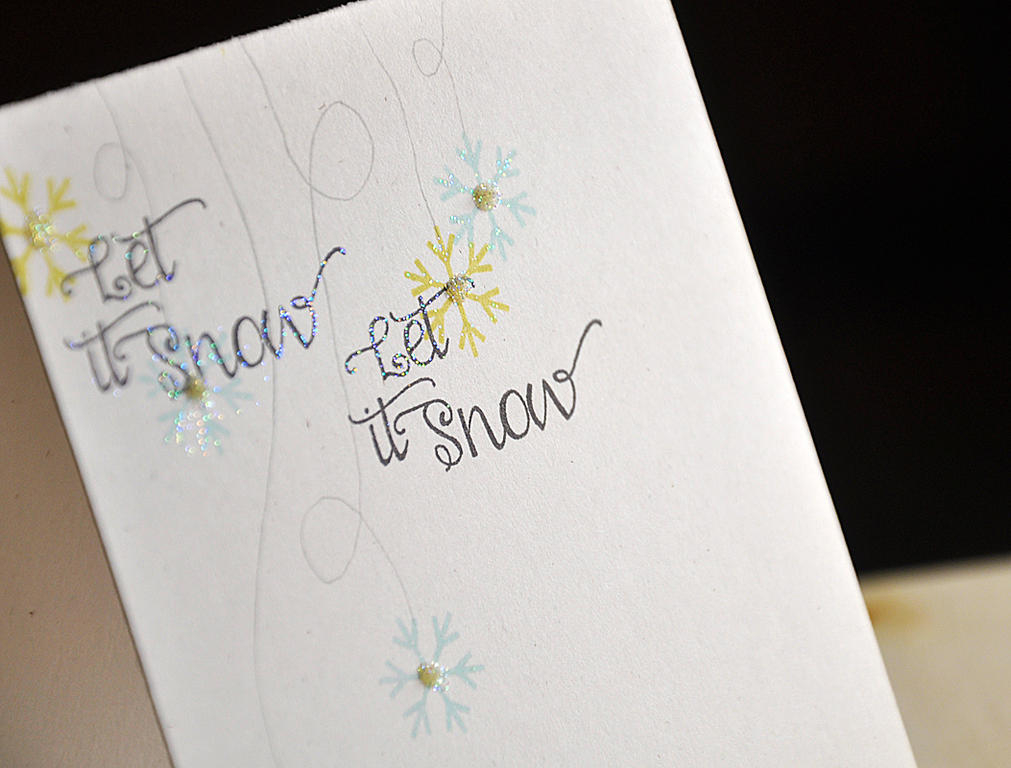 Let
it Snow
Let
it Snow